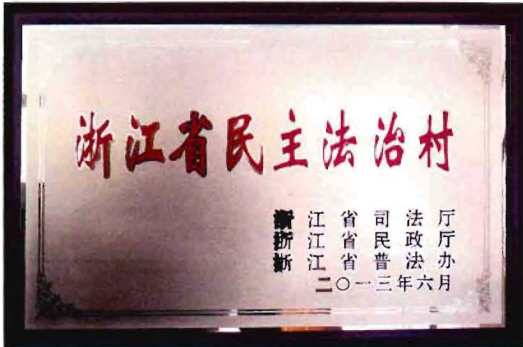 浙江省民主法治村
浙江省司法厅
浙江省民政厅
浙江省普法办
二〇一三年六月